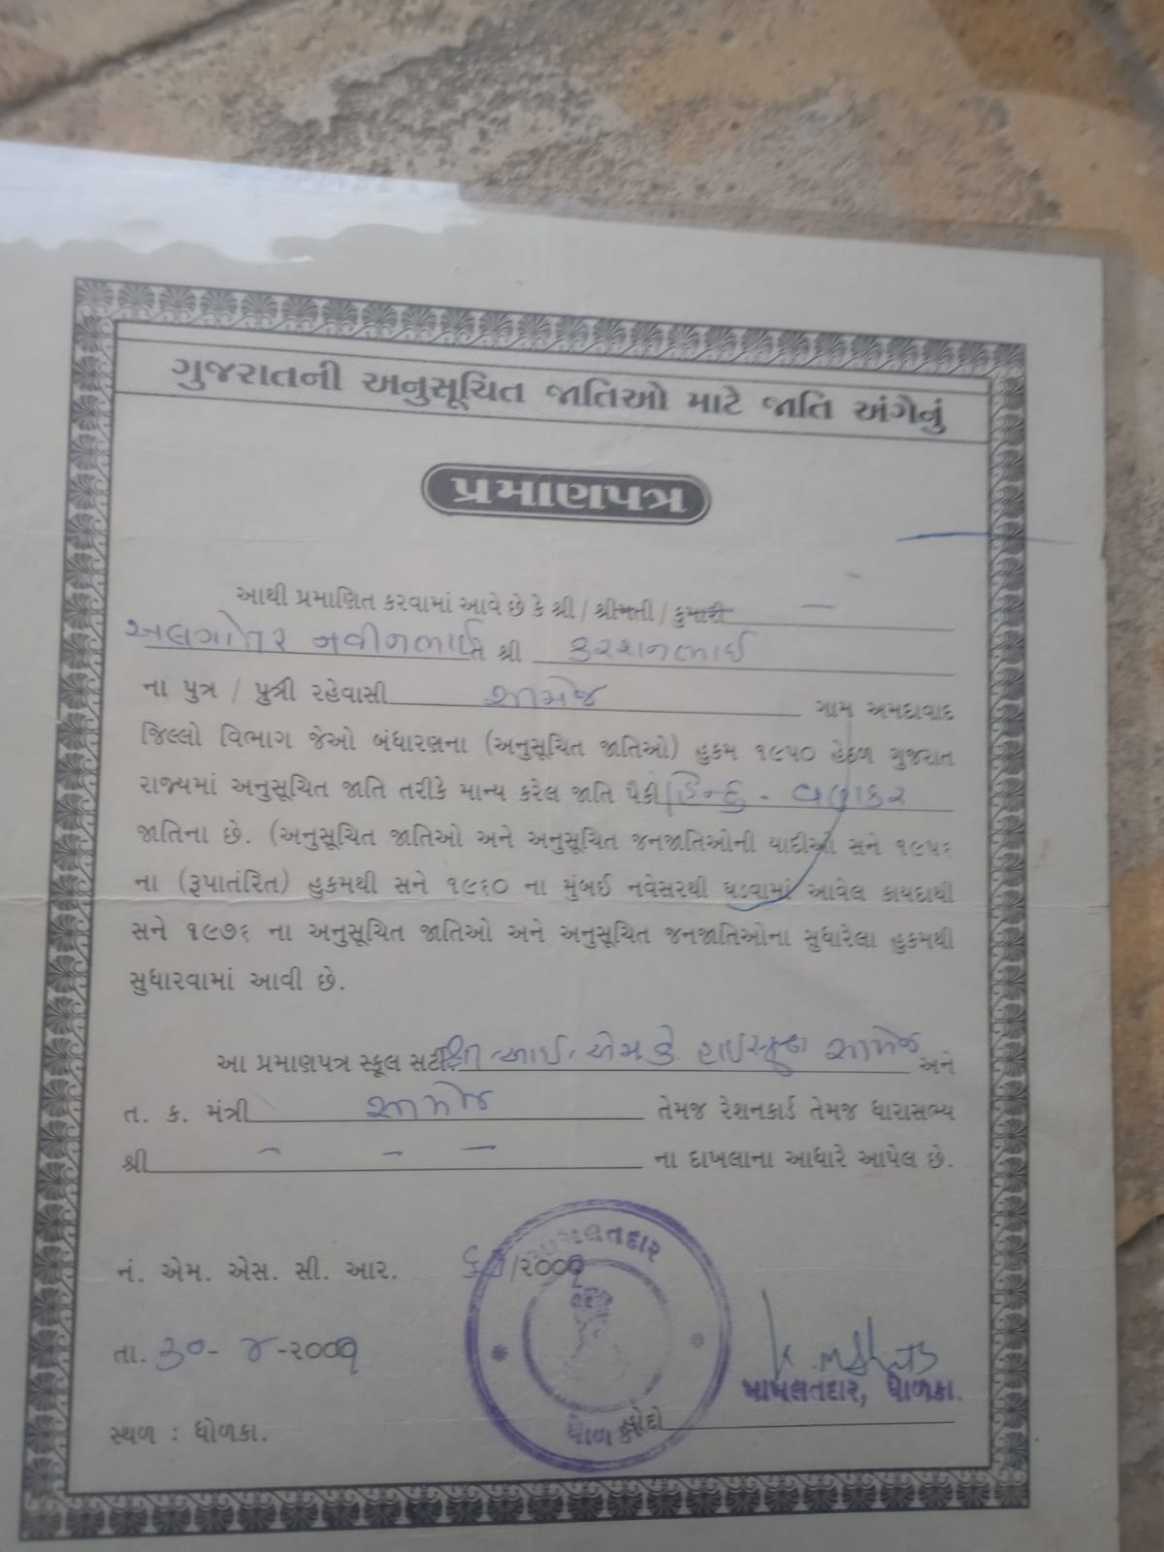 ગુજરાતની અનુસૂચિત જાતિઓ માટે જાતિ અંગેનું
પ્રમાણપત્ર
આથી પ્રમાણિત કરવામાં આવે છે કે શ્રી / શ્રીમતી / કુમારી —
અલગોતર નવીનભાઈ તે શ્રી કરશનભાઈ
ના પુત્ર / પુત્રી રહેવાસી આમેજ ગામ અમદાવાદ
જિલ્લો વિભાગ જેઓ બંધારણના (અનુસૂચિત જાતિઓ) હુકમ ૧૯૫૦ હેઠળ ગુજરાત
રાજ્યમાં અનુસૂચિત જાતિ તરીકે માન્ય કરેલ જાતિ પૈકી હિન્દુ - વણકર
જાતિના છે. (અનુસૂચિત જાતિઓ અને અનુસૂચિત જનજાતિઓની યાદીઓ સને ૧૯૫૬
ના (રૂપાતંરિત) હુકમથી સને ૧૯૬૦ ના મુંબઈ નવેસરથી ઘડવામાં આવેલ કાયદાથી
સને ૧૯૭૬ ના અનુસૂચિત જાતિઓ અને અનુસૂચિત જનજાતિઓના સુધારેલા હુકમથી
સુધારવામાં આવી છે.
આ પ્રમાણપત્ર સ્કૂલ સર્ટી આઈ. એમ કે. હાઈસ્કૂલ આમેજ અને
ત. ક. મંત્રી આમેજ તેમજ રેશનકાર્ડ તેમજ ધારાસભ્ય
શ્રી — — — ના દાખલાના આધારે આપેલ છે.
નં. એમ. એસ. સી. આર. /૨૦૦૧
મામલતદાર
તા. ૩૦- ૪ -૨૦૦૧
મામલતદાર, ધોળકા.
સ્થળ : ધોળકા.
ધોળકા
હોદ્દો